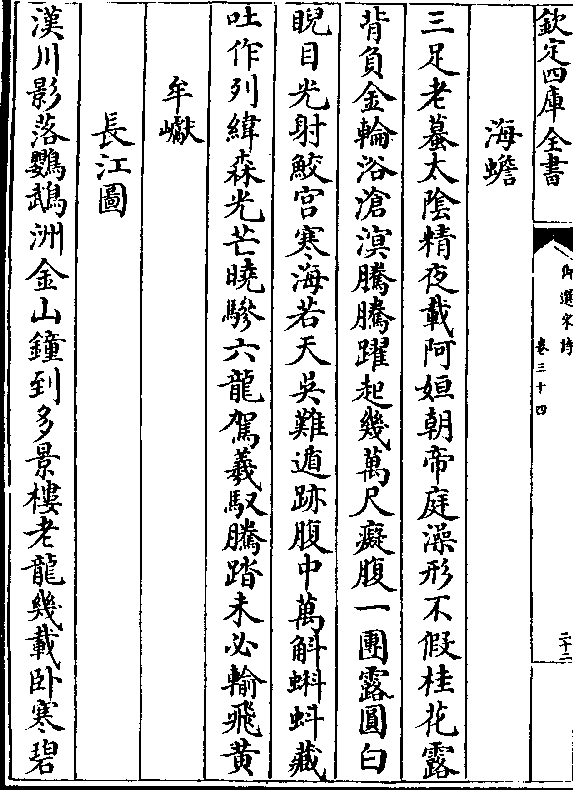 欽定四庫全書
御選宋詩
卷三十四
二十二
海蟾
三足老蟇太陰精夜載阿姮朝帝庭澡形不假桂花露
背負金輪浴滄溟騰騰躍起幾萬尺癡腹一團露圓白
睨目光射鮫宮寒海若天吳難遁跡腹中萬斛蝌蚪藏
吐作列緯森光芒曉驂六龍駕羲馭騰踏未必輸飛黃
牟巘
長江圖
漢川影落鸚鵡洲金山鐘到多景樓老龍幾載卧寒碧